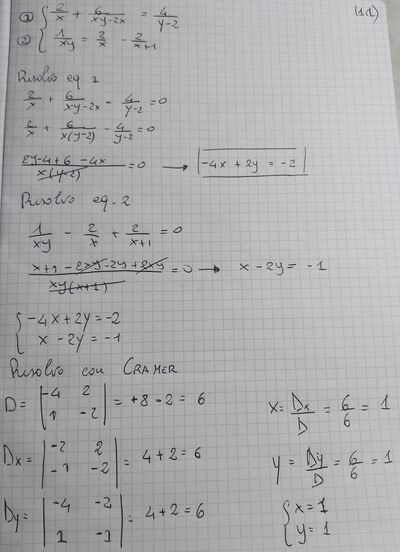 (1,1)
① { 2/x + 6/(xy-2x) = 4/(y-2)
② { 1/xy = 2/x - 2/(x+1)
Risolvo eq 1
2/x + 6/(xy-2x) - 4/(y-2) = 0
2/x + 6/(x(y-2)) - 4/(y-2) = 0
(2y-4+6-4x)/(x(y-2)) = 0 → -4x + 2y = -2
Risolvo eq. 2
1/xy - 2/x + 2/(x+1) = 0
(x+1-2xy-2y+2xy)/(xy(x+1)) = 0 → x-2y = -1
{ -4x+2y = -2
{ x-2y = -1
Risolvo con CRAMER
D = | -4 2 | = +8-2 = 6
| 1 -2 |
x = Dx/D = 6/6 = 1
Dx = | -2 2 | = 4+2 = 6
| -1 -2 |
y = Dy/D = 6/6 = 1
Dy = | -4 -2 | = 4+2 = 6
| 1 -1 |
{ x=1
{ y=1